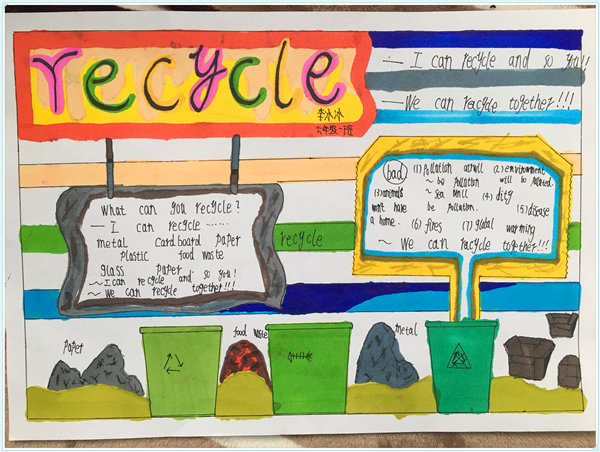 recycle
李冰冰
六年级一班
— I can recycle and so you!!
— We can racycle together!!!
What can you recycle?
— I can recycle ......
metal Cardboard paper
plastic food waste
glass paper
~ I can recycle and so you!
~ We can recycle together!!!
recycle
bad (1) pollation (2) environment
~ be pollation will be polluted.
(3) animals ~ sea (4) dity
won't have be pollation. (5) disease
a home. (6) fires (7) global warming
~ We can racycle together!!!
paper
food waste
metal